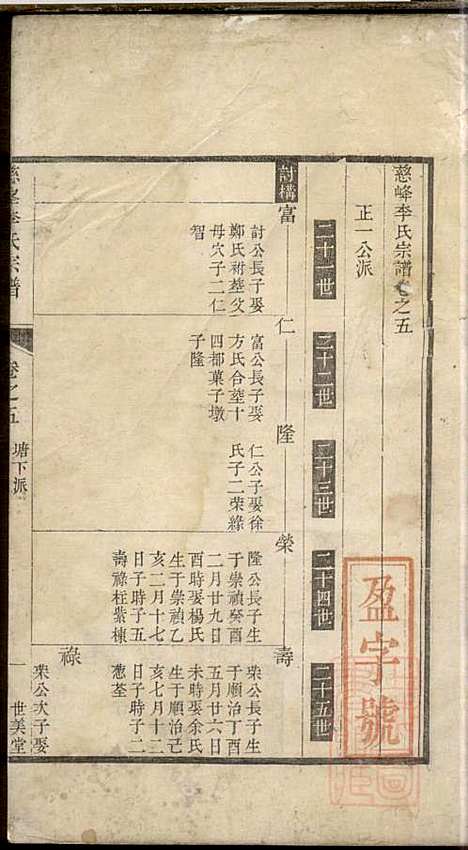 慈峰李氏宗譜卷之五
正一公派
二十一世
二十二世
二十三世
二十四世
二十五世
討構富
仁
隆
榮
壽
討公長子娶
鄭氏祔塟父
母穴子二仁
智
富公長子娶
方氏合塟十
四都菓子墩
子隆
仁公子娶徐
氏子二荣綠
隆公長子生
于崇禎癸酉
二月廿九日
酉時娶楊氏
生于崇禎乙
亥二月十七
日子時子五
壽祿枉紫棟
荣公長子生
于順治丁酉
五月廿六日
未時娶余氏
生于順治己
亥七月十二
日子時子二
荃
祿
荣公次子娶
慈峰李氏宗譜
卷之五
塘下派
一
世美堂
盈字號